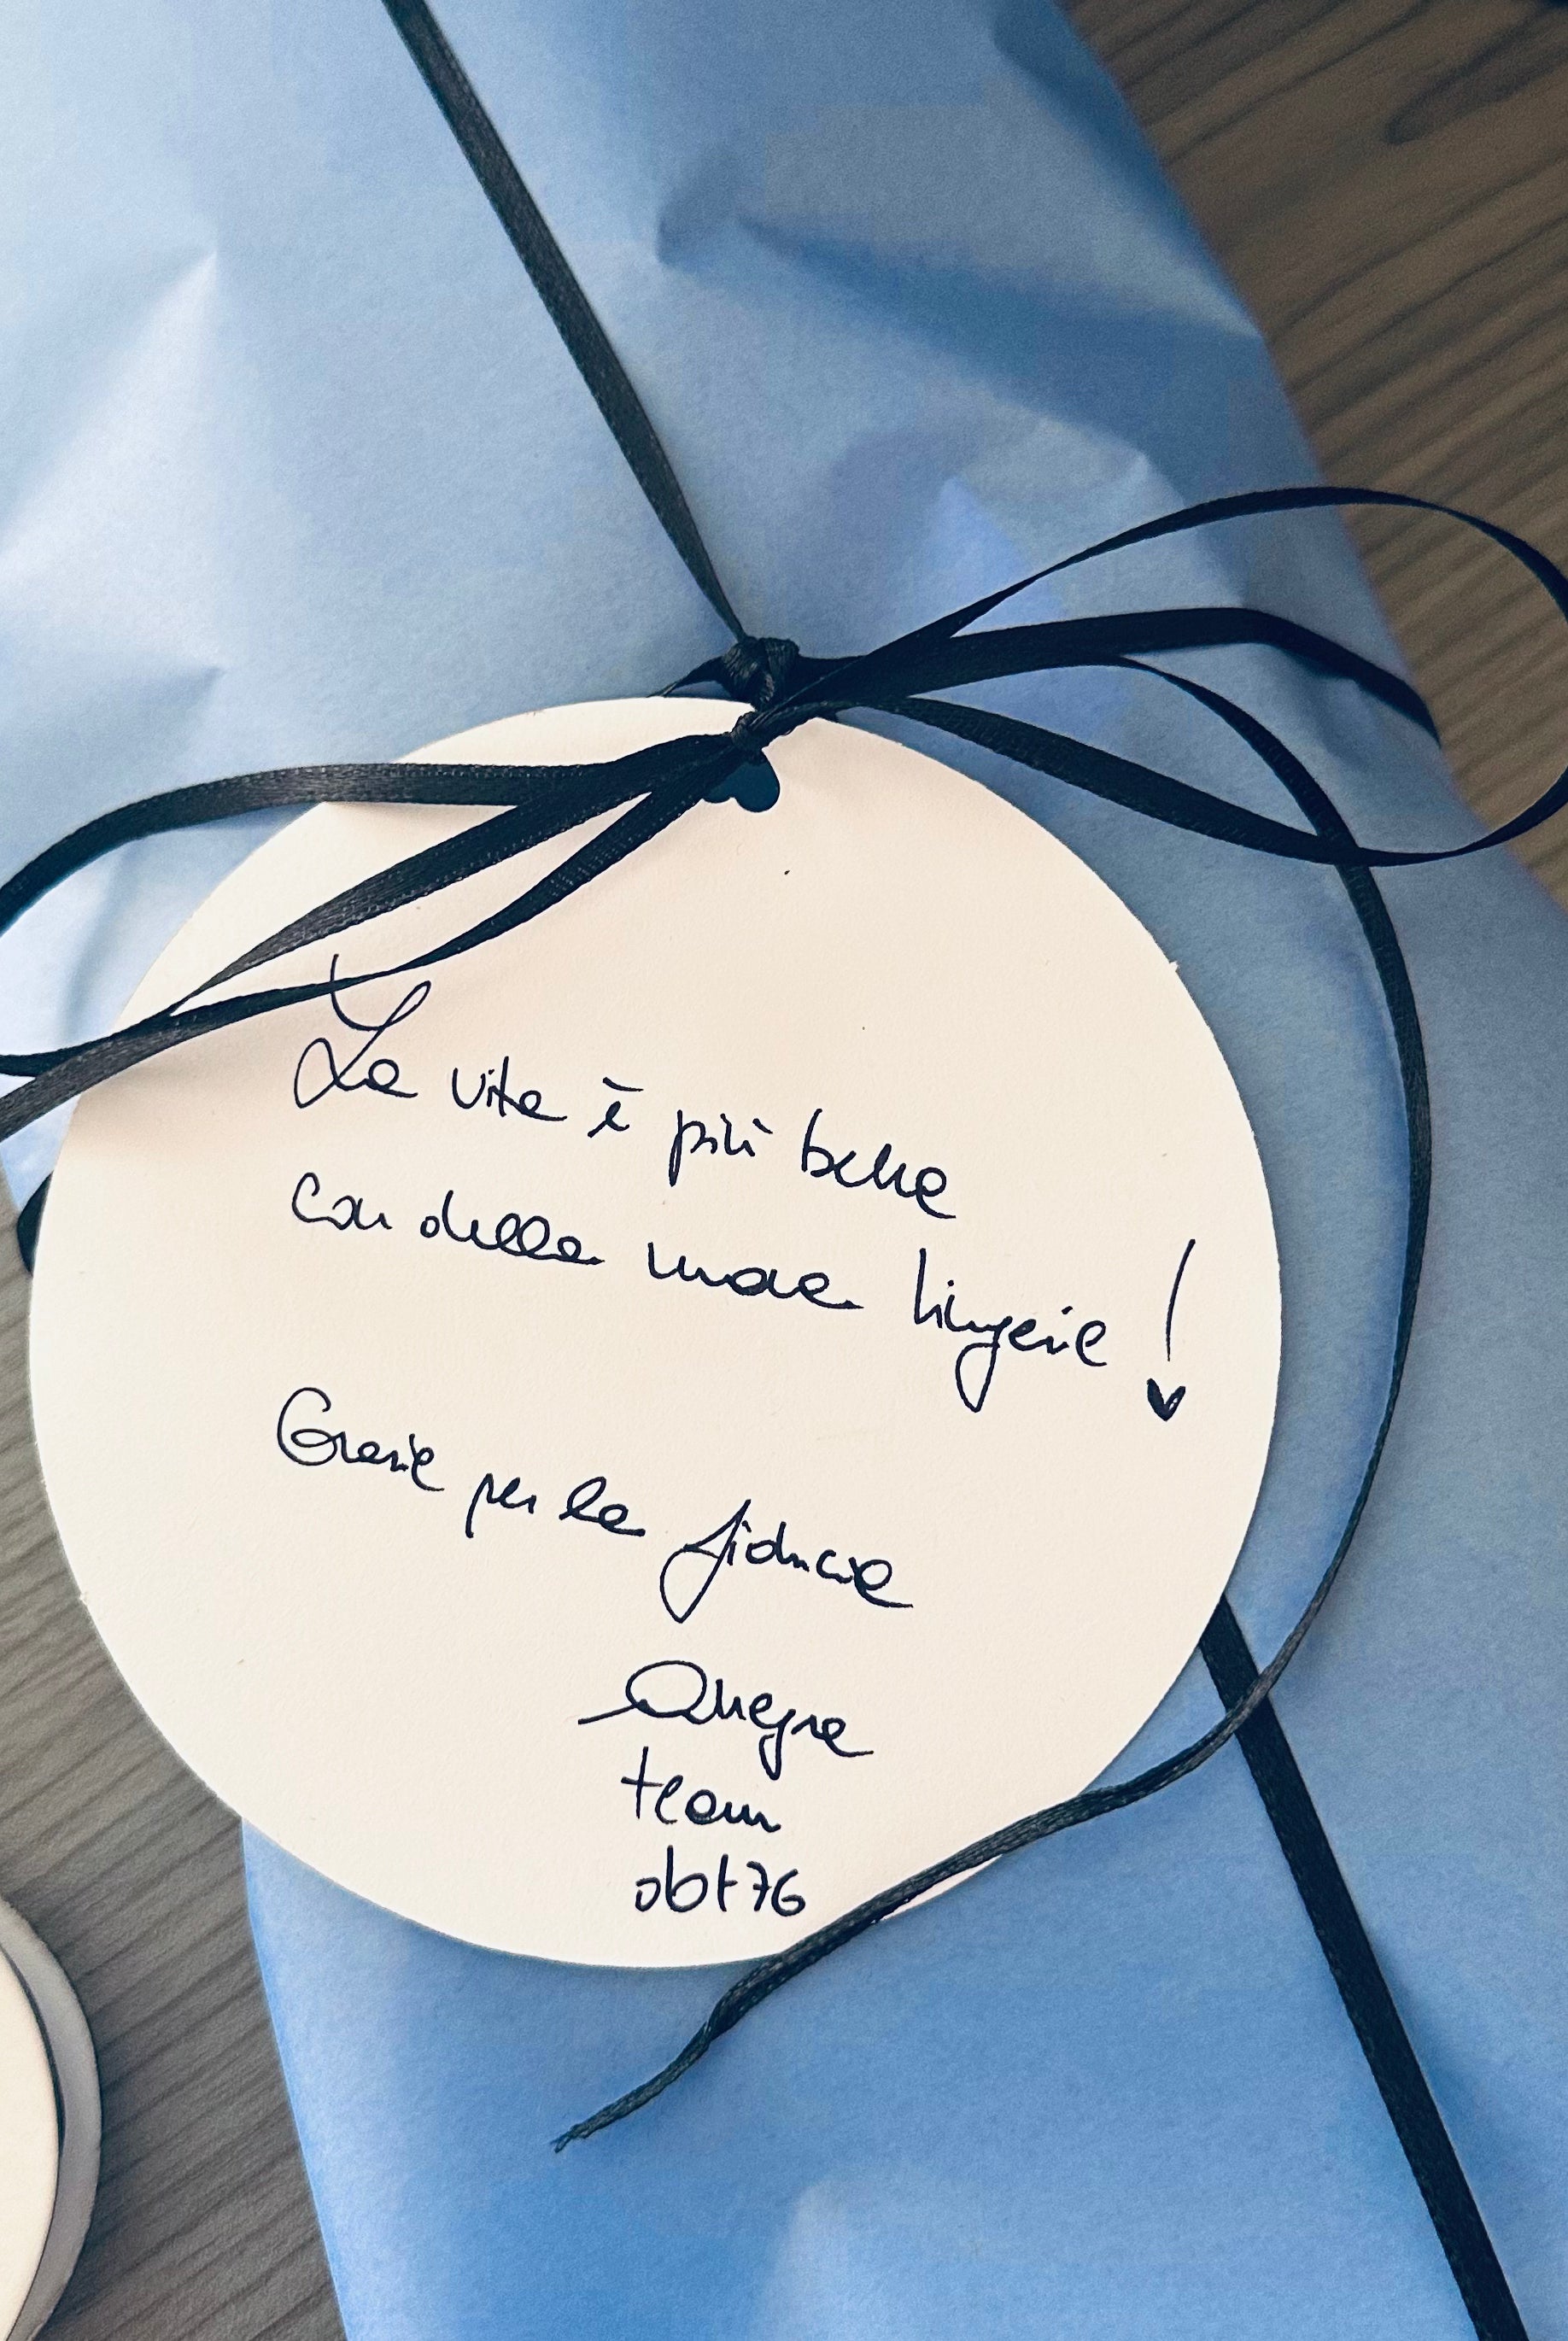 La vita è più bella
con della nuova lingerie!
Grazie per la fiducia
Allegra
team
obt76